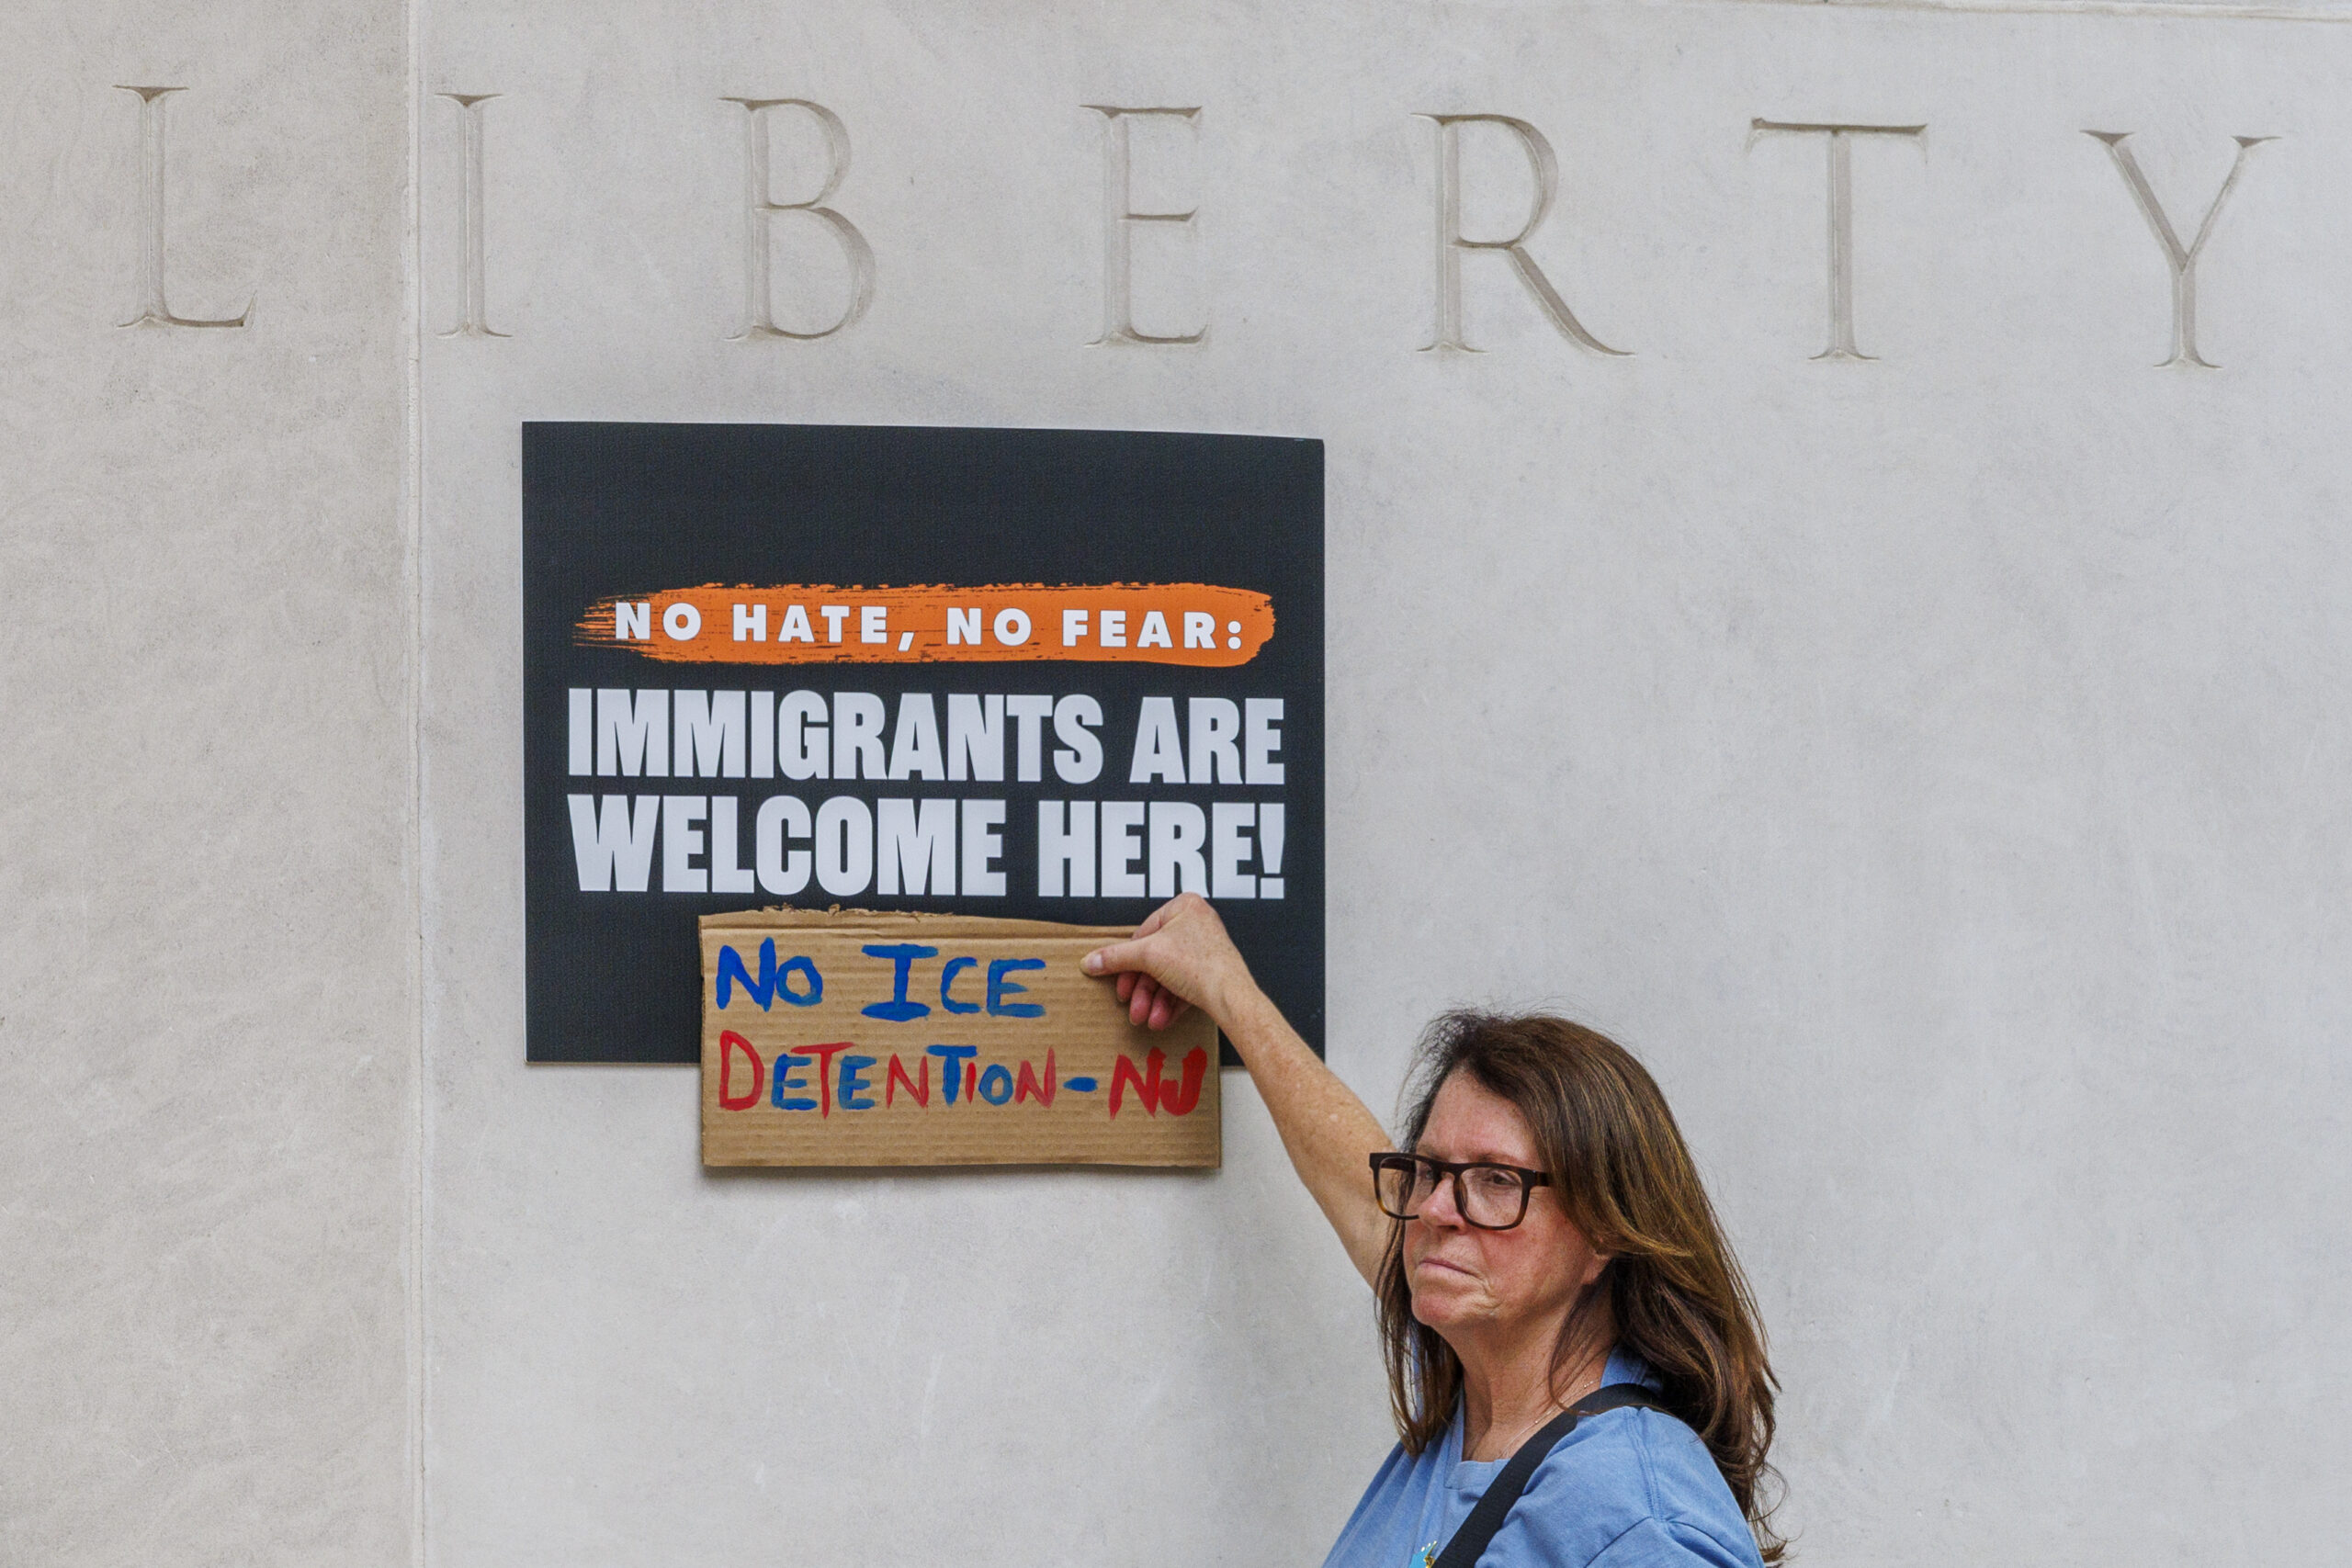 LIBERTY
NO HATE, NO FEAR:
IMMIGRANTS ARE
WELCOME HERE!
NO ICE
DETENTION-NJ